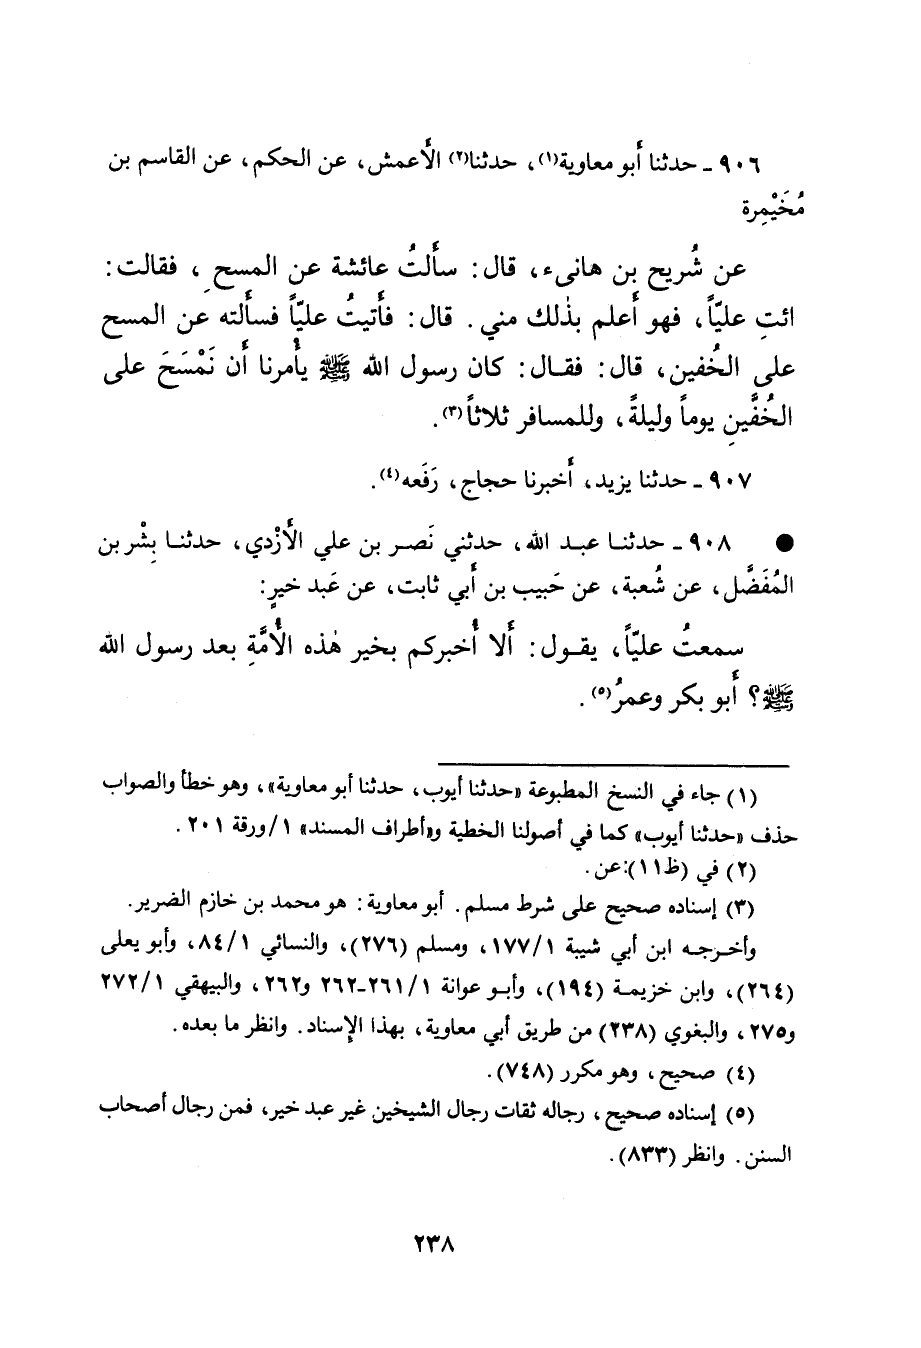 ٩٠٦ ـ حدثنا أَبو معاوية(١)، حدثنا(٢) الأَعمش، عن الحكم، عن القاسم بن
مُخَيْمِرة
عن شُريح بن هانىء، قال: سأَلتُ عائشة عن المسحِ، فقالت:
ائتِ عليّاً، فهو أَعلم بذٰلك مني. قال: فأَتيتُ عليّاً فسأَلته عن المسح
على الخُفين، قال: فقال: كان رسول الله ﷺ يأْمرنا أَن نَمْسَحَ على
الخُفَّينِ يوماً وليلةً، وللمسافر ثلاثاً(٣).
٩٠٧ ـ حدثنا يزيد، أَخبرنا حجاج، رَفَعه(٤).
● ٩٠٨ ـ حدثنا عبد الله، حدثني نَصر بن علي الأَزْدي، حدثنا بِشْر بن
المُفَضَّل، عن شُعبة، عن حَبيب بن أَبي ثابت، عن عَبد خيرٍ:
سمعتُ عليّاً، يقول: أَلا أُخبركم بخير هٰذه الأُمَّةِ بعد رسول الله
ﷺ؟ أَبو بكر وعمرُ(٥).
(١) جاء في النسخ المطبوعة «حدثنا أيوب، حدثنا أبو معاوية»، وهو خطأ والصواب
حذف «حدثنا أيوب» كما في أصولنا الخطية و«أطراف المسند» ١/ورقة ٢٠١.
(٢) في (ظ١١): عن.
(٣) إسناده صحيح على شرط مسلم. أبو معاوية: هو محمد بن خازم الضرير.
وأخرجه ابن أبي شيبة ١٧٧/١، ومسلم (٢٧٦)، والنسائي ٨٤/١، وأبو يعلى
(٢٦٤)، وابن خزيمة (١٩٤)، وأبو عوانة ٢٦١/١-٢٦٢ و٢٦٢، والبيهقي ٢٧٢/١
و٢٧٥، والبغوي (٢٣٨) من طريق أبي معاوية، بهذا الإسناد. وانظر ما بعده.
(٤) صحيح، وهو مكرر (٧٤٨).
(٥) إسناده صحيح، رجاله ثقات رجال الشيخين غير عبد خير، فمن رجال أصحاب
السنن. وانظر (٨٣٣).
٢٣٨